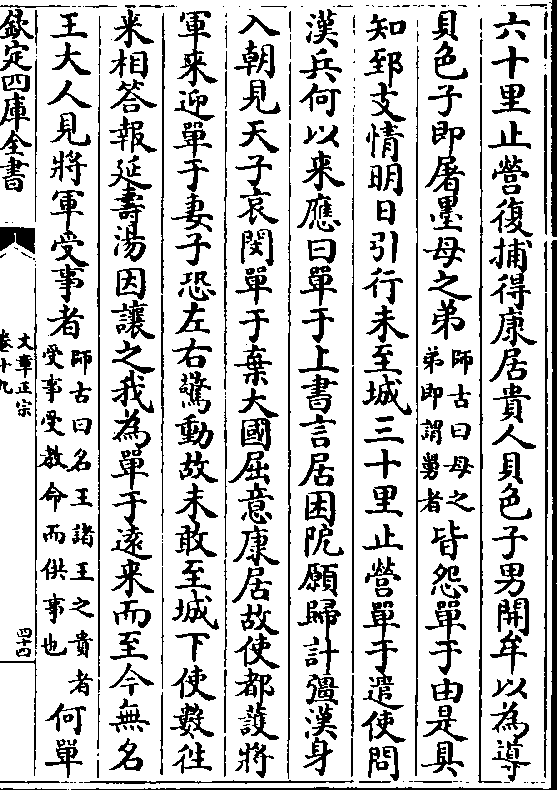 六十里止營復捕得康居貴人貝色子男開牟以為導
貝色子即屠墨母之弟師古曰母之弟即謂舅者皆怨單于由是具
知郅支情明日引行未至城三十里止營單于遣使問
漢兵何以来應曰單于上書言居困阨願歸計彊漢身
入朝見天子哀閔單于棄大國屈意康居故使都護將
軍来迎單于妻子恐左右驚動故未敢至城下使數往
来相答報延壽湯因讓之我為單于遠来而至今無名
王大人見將軍受事者師古曰名王諸王之貴者受事受教命而供事也何單
欽定四庫全書
文章正宗
卷十九
四十四